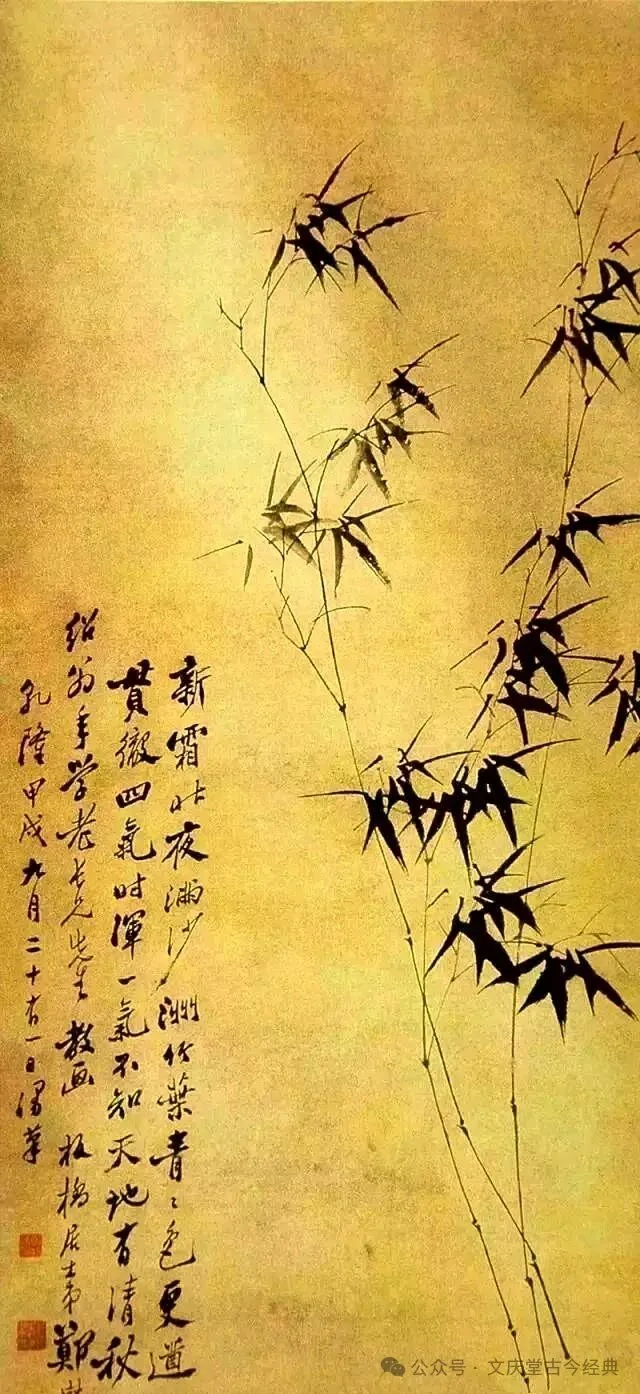 新霜昨夜滿沙洲竹葉青〻色更遒
貫徹四氣时渾一氣不知天地有清秋
年学老長兄先生 教画 板橋居士弟鄭燮
乾隆甲戌九月二十有一日
公众号 · 文庆堂古今经典